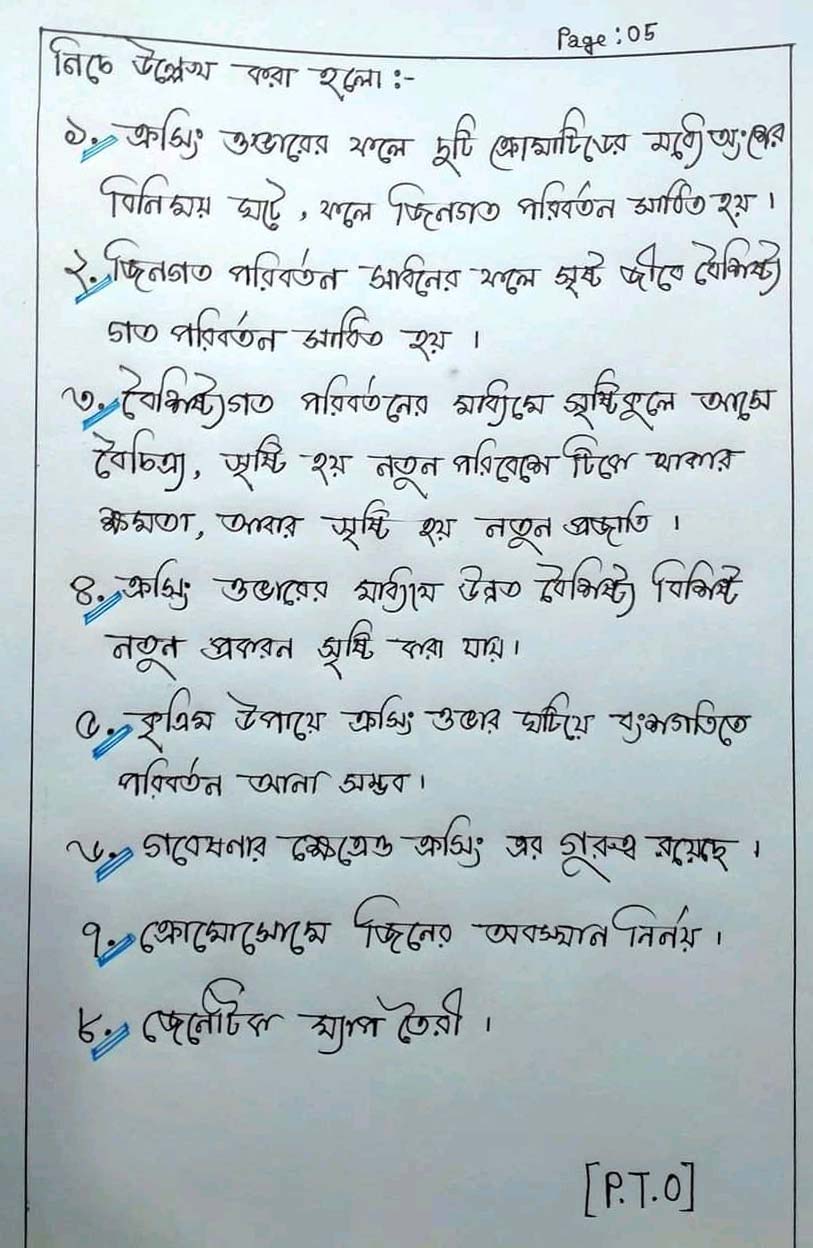 Page: 05
নিচে উল্লেখ করা হলো :-
১. ক্রসিং ওভারের ফলে দুটি ক্রোমাটিডের মধ্যে অংশের
বিনিময় ঘটে, ফলে জিনগত পরিবর্তন সাধিত হয়।
২. জিনগত পরিবর্তন সাধনের ফলে সৃষ্ট জীবে বৈশিষ্ট্য
গত পরিবর্তন সাধিত হয়।
৩. বৈশিষ্ট্যগত পরিবর্তনের মাধ্যমে সৃষ্টিকুলে আসে
বৈচিত্র্য, সৃষ্টি হয় নতুন পরিবেশে টিকে থাকার
ক্ষমতা, আবার সৃষ্টি হয় নতুন প্রজাতি।
৪. ক্রসিং ওভারের মাধ্যমে উন্নত বৈশিষ্ট্য বিশিষ্ট
নতুন প্রকরন সৃষ্টি করা যায়।
৫. কৃত্রিম উপায়ে ক্রসিং ওভার ঘটিয়ে বংশগতিতে
পরিবর্তন আনা সম্ভব।
৬. গবেষনার ক্ষেত্রেও ক্রসিং এর গুরুত্ব রয়েছে।
৭. ক্রোমোসোমে জিনের অবস্থান নির্নয়।
৮. জেনেটিক ম্যাপ তৈরী।
[P.T.O]